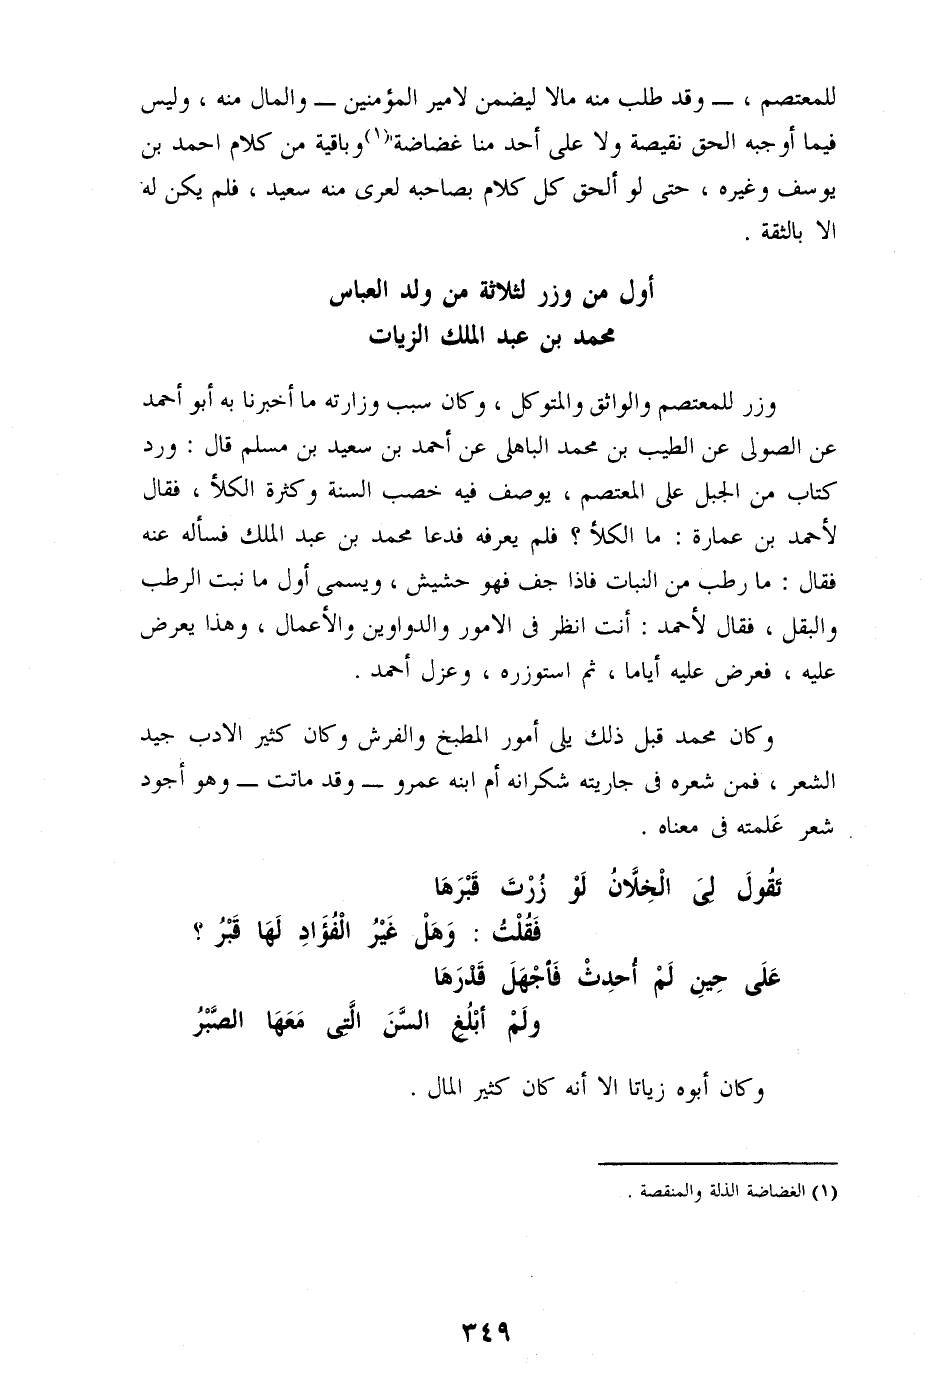 للمعتصم ، ــ وقد طلب منه مالا ليضمن لامير المؤمنين ــ والمال منه ، وليس
فيما أوجبه الحق نقيصة ولا على أحد منا غضاضة(١) وباقية من كلام احمد بن
يوسف وغيره ، حتى لو ألحق كل كلام بصاحبه لعرى منه سعيد ، فلم يكن له
الا بالثقة .
أول من وزر لثلاثة من ولد العباس
محمد بن عبد الملك الزيات
وزر للمعتصم والواثق والمتوكل ، وكان سبب وزارته ما أخبرنا به أبو أحمد
عن الصولى عن الطيب بن محمد الباهلى عن أحمد بن سعيد بن مسلم قال : ورد
كتاب من الجبل على المعتصم ، يوصف فيه خصب السنة وكثرة الكلأ ، فقال
لأحمد بن عمارة : ما الكلأ ؟ فلم يعرفه فدعا محمد بن عبد الملك فسأله عنه
فقال : ما رطب من النبات فاذا جف فهو حشيش ، ويسمى أول ما نبت الرطب
والبقل ، فقال لأحمد : أنت انظر فى الامور والدواوين والأعمال ، وهذا يعرض
عليه ، فعرض عليه أياما ، ثم استوزره ، وعزل أحمد .
وكان محمد قبل ذلك يلى أمور المطبخ والفرش وكان كثير الادب جيد
الشعر ، فمن شعره فى جاريته شكرانه أم ابنه عمرو ــ وقد ماتت ــ وهو أجود
شعر عَلمته فى معناه .
تَقُولَ لِىَ الْخِلَّانُ لَوْ زُرْتَ قَبْرَهَا
فَقُلْتُ : وَهَلْ غَيْرُ الْفُؤَادِ لَهَا قَبْرُ ؟
عَلَى حِينِ لَمْ أُحدِثْ فَأَجْهَلَ قَدْرَهَا
ولَمْ أبْلُغِ السَّنَ الَّتِى مَعَهَا الصَّبْرُ
وكان أبوه زياتا الا أنه كان كثير المال .
(١) الغضاضة الذلة والمنقصة .
٣٤٩